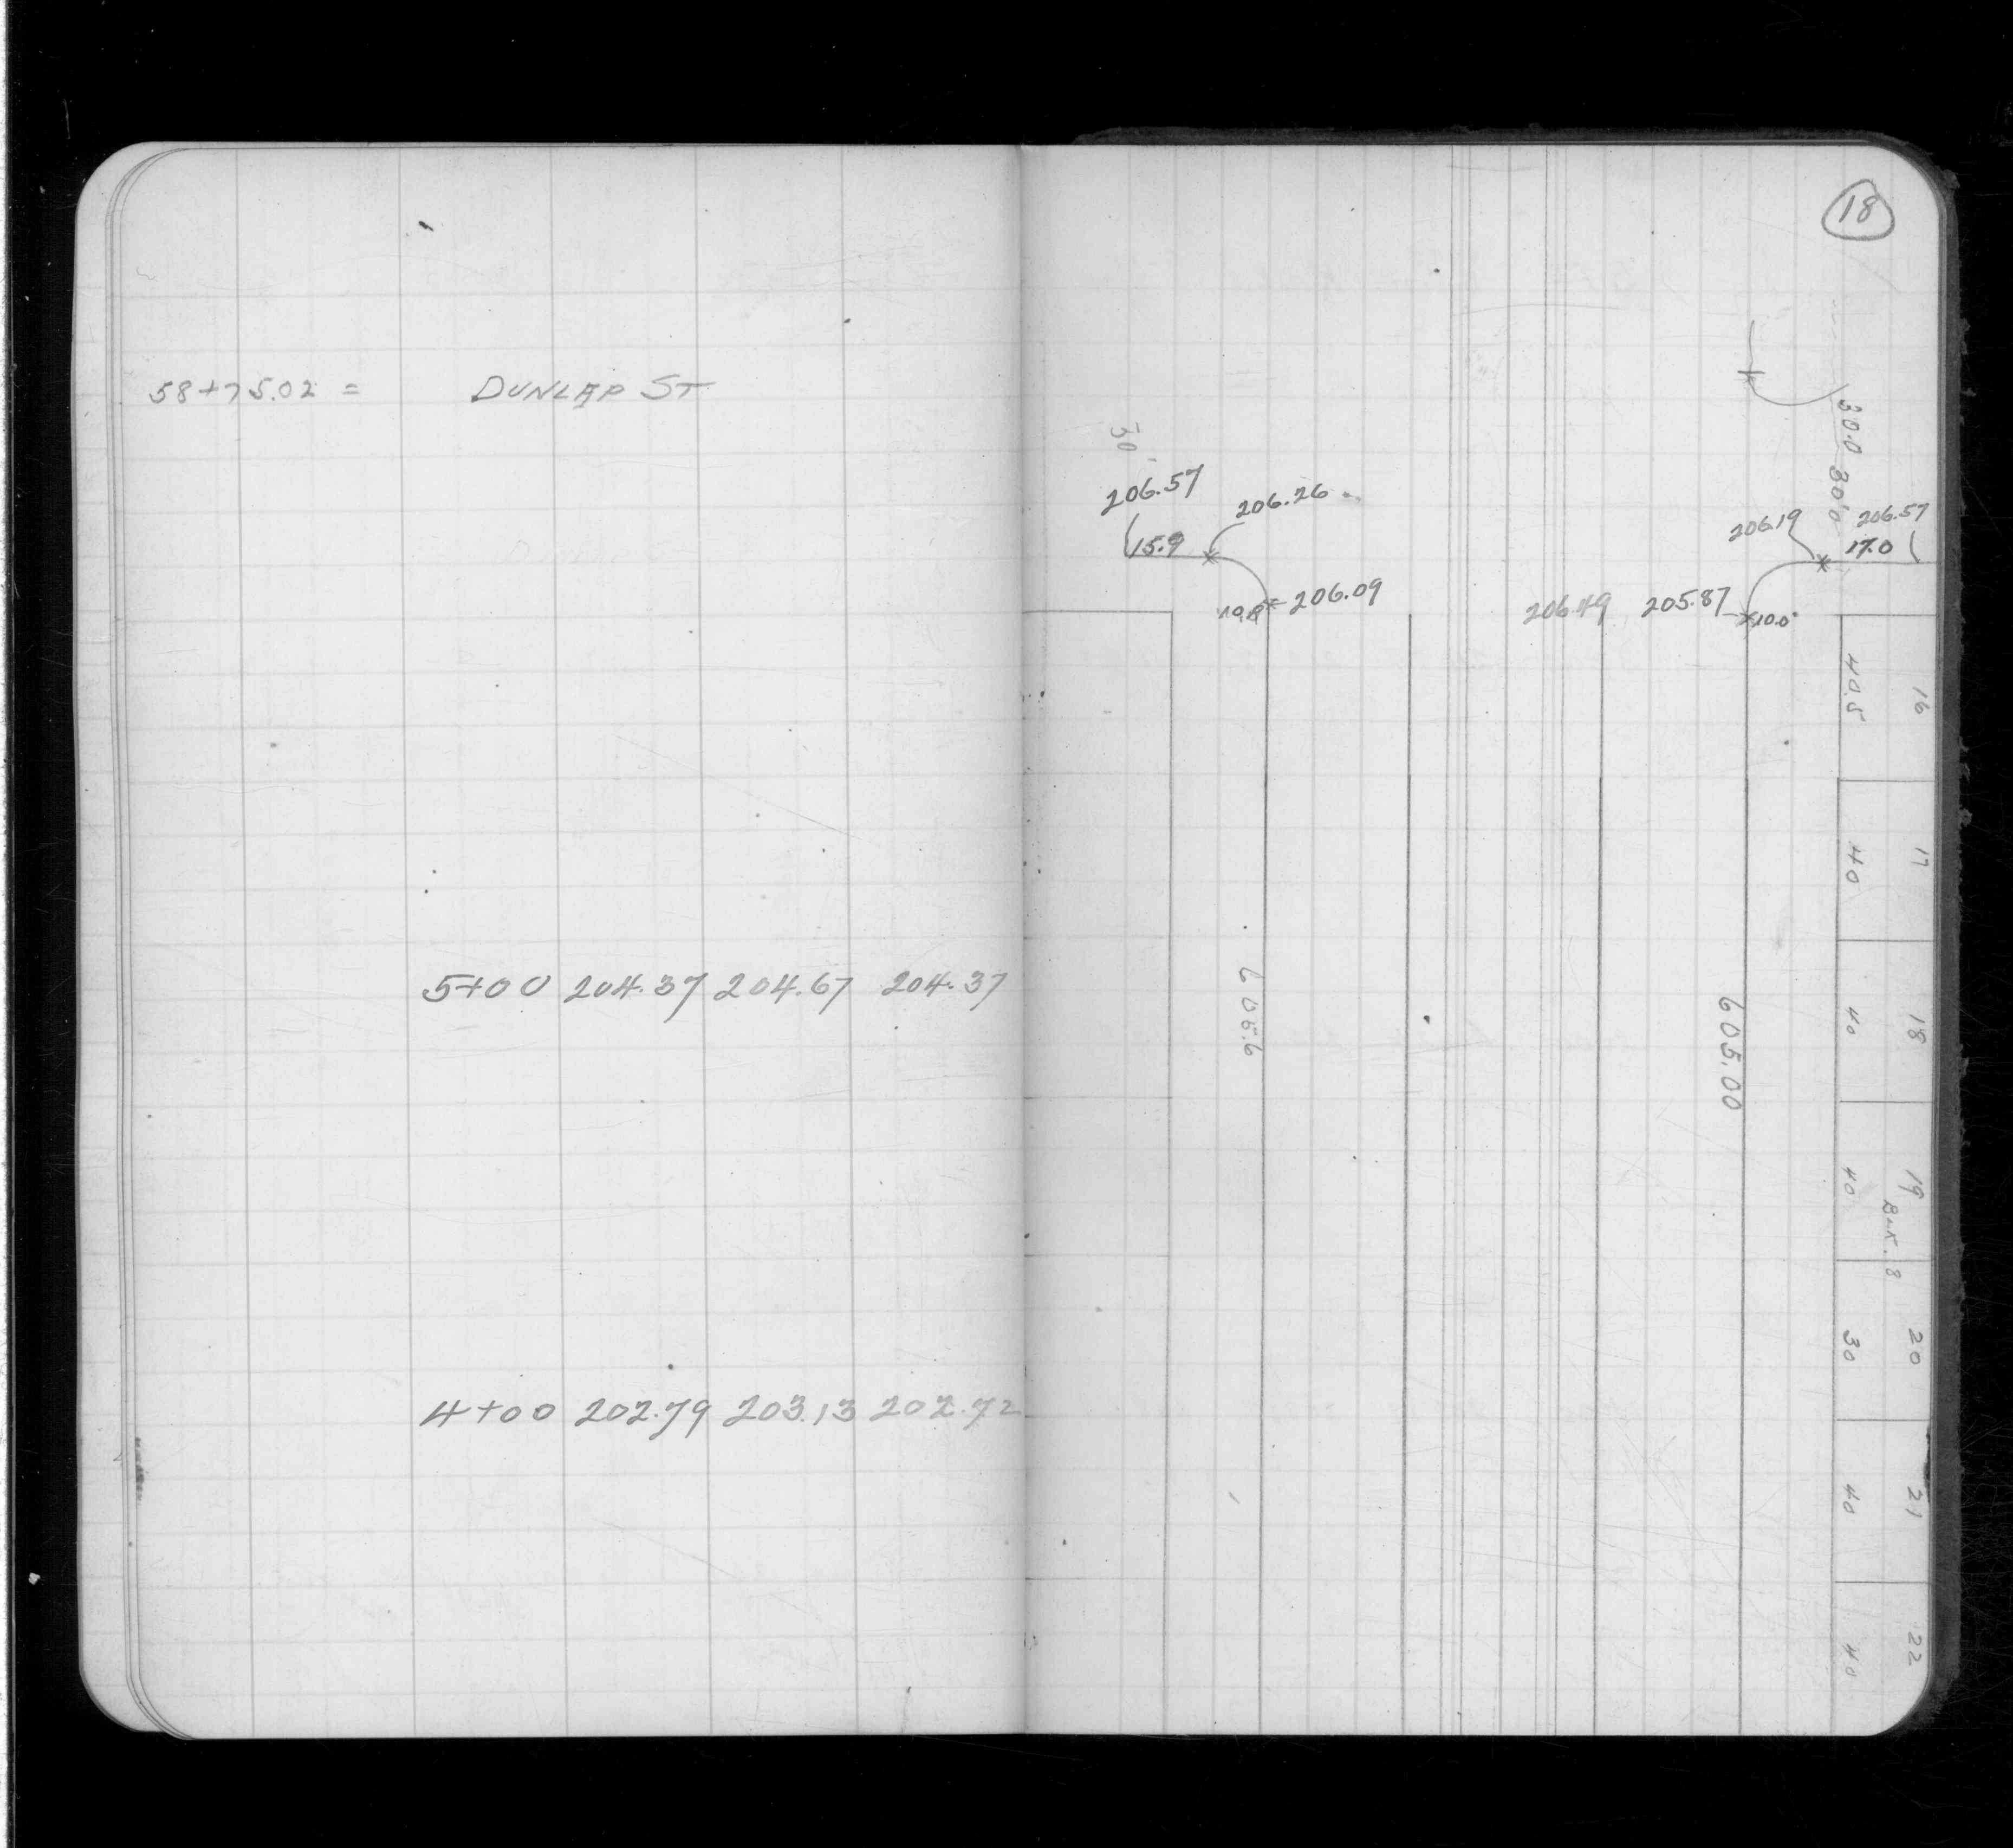 58+75.02 = DUNLAP ST
5+00 204.37 204.67 204.37
4+00 202.79 203.13 202.72
18
30'
206.57
206.26
15.9
206.09
30.0
30.0
206.19
206.57
17.0
206.49
205.87
10.0
605.6
605.00
40.5 16
40 17
40 18
40 19
30 20
40 21
40 22